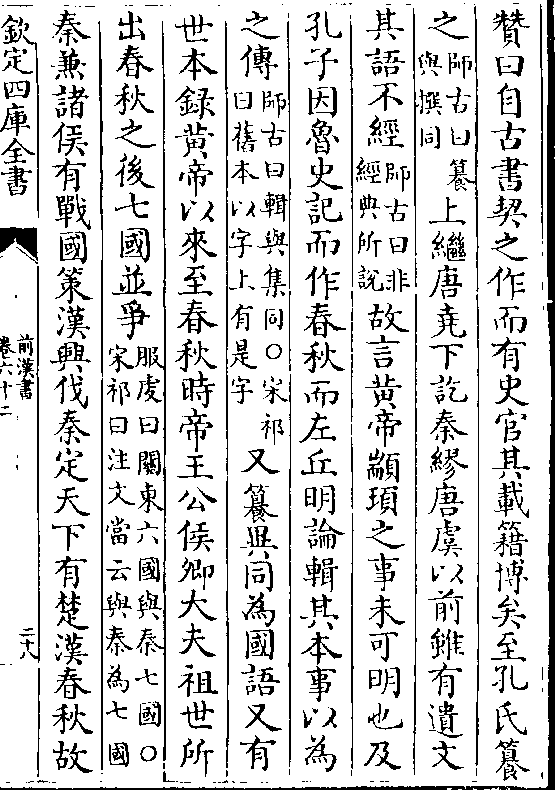 贊曰自古書契之作而有史官其載籍博矣至孔氏籑
之師古曰籑與撰同上繼唐堯下訖秦繆唐虞以前雖有遺文
其語不經師古曰非經典所說故言黃帝顓頊之事未可明也及
孔子因魯史記而作春秋而左丘明論輯其本事以為
之傳師古曰輯與集同○宋祁曰舊本以字上有是字又籑異同為國語又有
世本錄黃帝以來至春秋時帝王公侯卿大夫祖世所
出春秋之後七國並爭服虔曰關東六國與秦七國○宋祁曰注文當云與秦為七國
秦兼諸侯有戰國策漢興伐秦定天下有楚漢春秋故
欽定四庫全書
前漢書
卷六十二
二十八